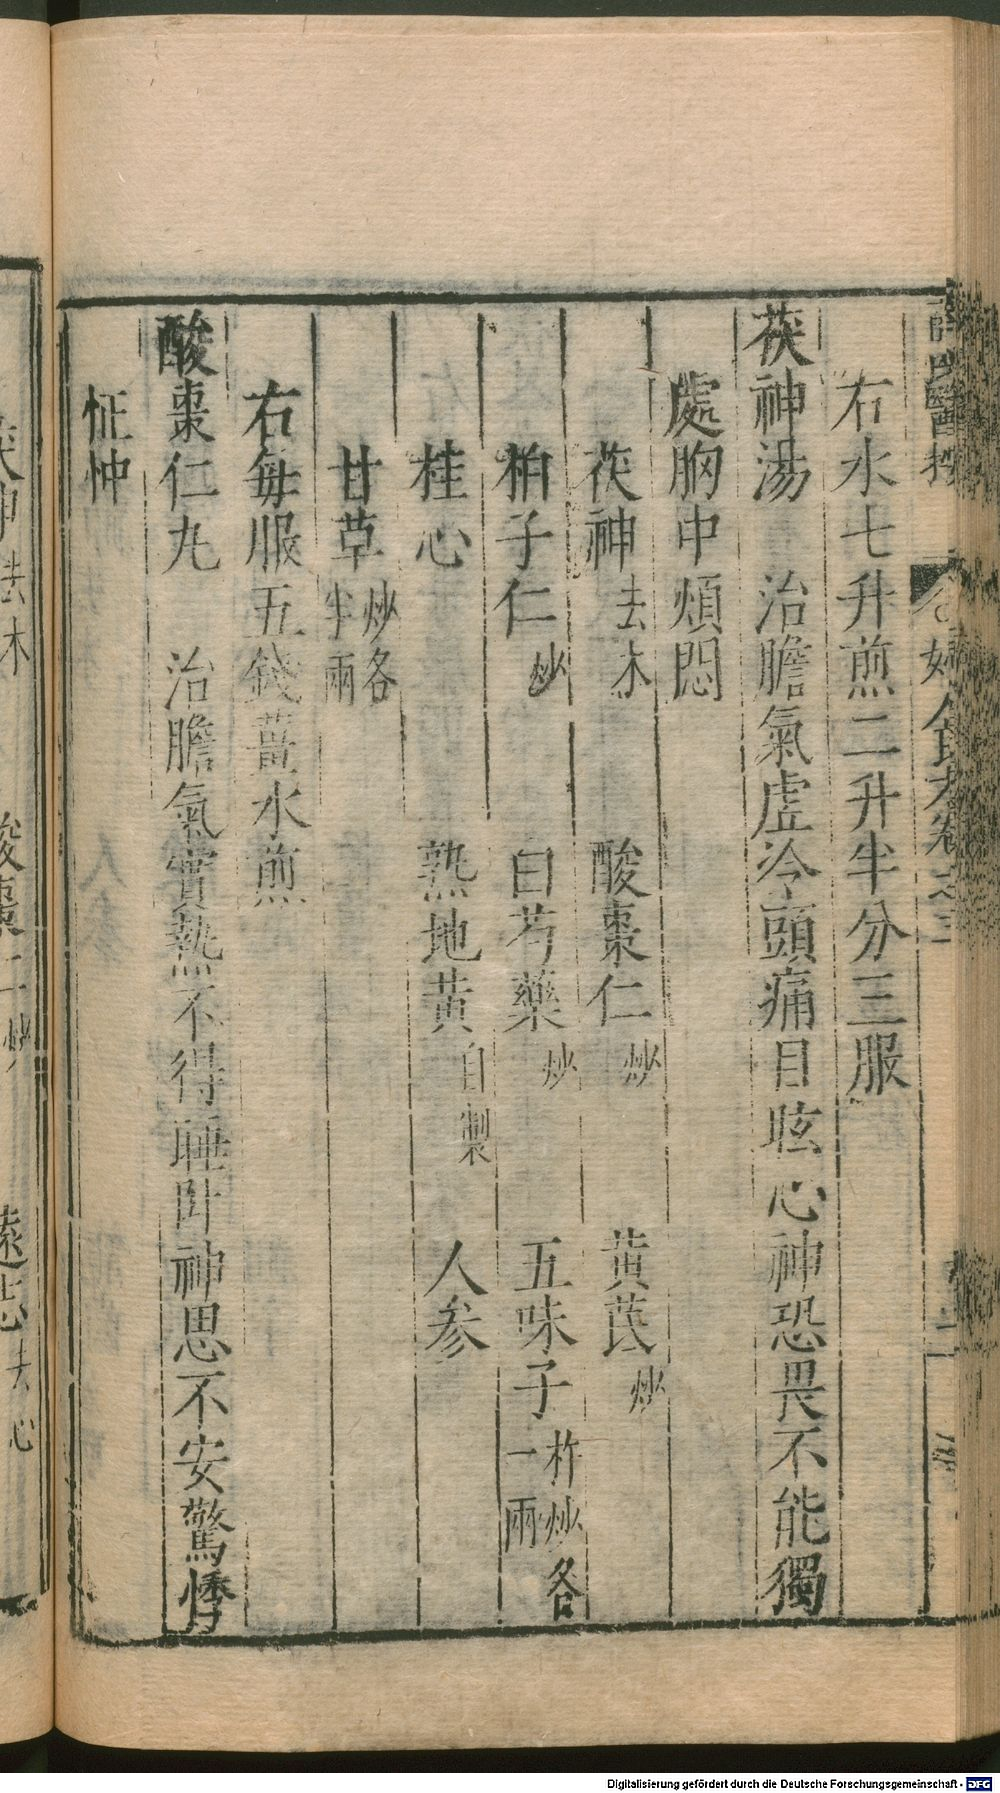 右水七升煎二升半分三服
茯神湯　治膽氣虛冷頭痛目眩心神恐畏不能獨
處胸中煩悶
茯神去木　酸棗仁炒　黃芪炒
柏子仁炒　白芍藥炒　五味子杵炒各一兩
桂心　熟地黃自製　人參
甘草炒各半兩
右每服五錢薑水煎
酸棗仁丸　治膽氣實熱不得睡卧神思不安驚悸
怔忡
茯神去木　酸棗仁炒　遠志去心
Digitalisierung gefördert durch die Deutsche Forschungsgemeinschaft - DFG